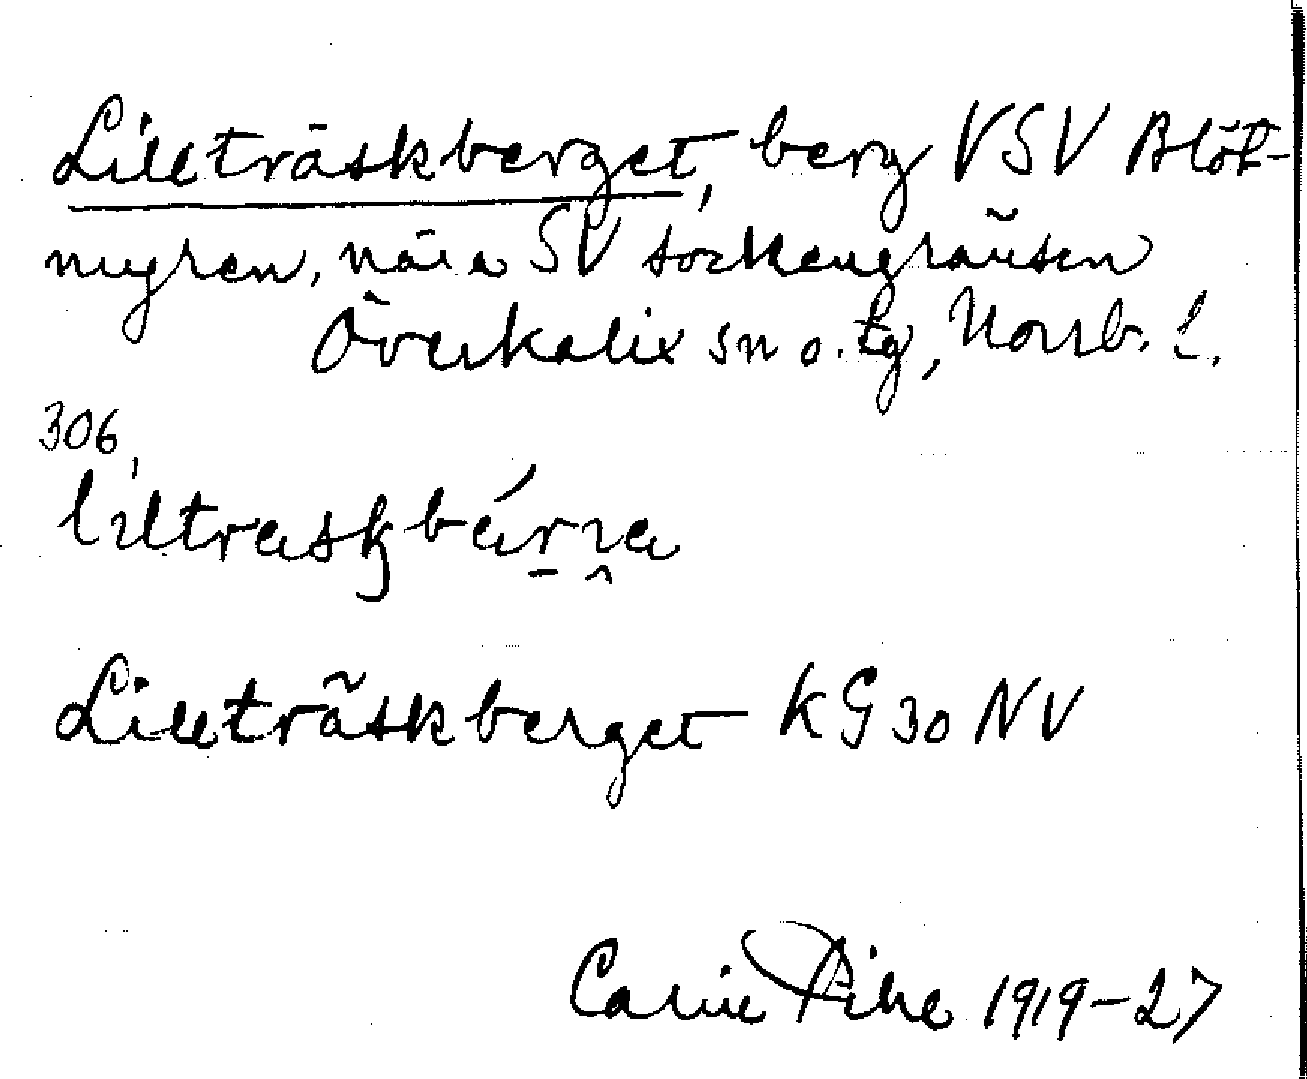 Lillträskberget, berg VSV Blöt-
myren, nära SV sockengränsen
Överkalix sn o. tg, Norrb. l.
306,
Lillträskberget KG 30 NV
Carin Pihl 1919-27